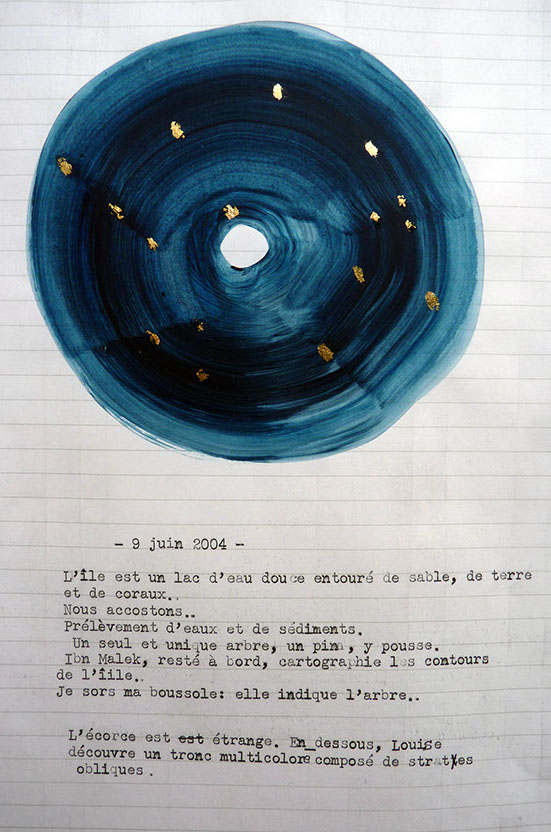 - 9 juin 2004 -
L'île est un lac d'eau douce entouré de sable, de terre
et de coraux..
Nous accostons..
Prélèvement d'eaux et de sédiments.
Un seul et unique arbre, un pin, y pousse.
Ibn Malek, resté à bord, cartographie les contours
de l'îile..
Je sors ma boussole: elle indique l'arbre..
L'écorce est est étrange. En dessous, Louise
découvre un tronc multicolore composé de strates
obliques.